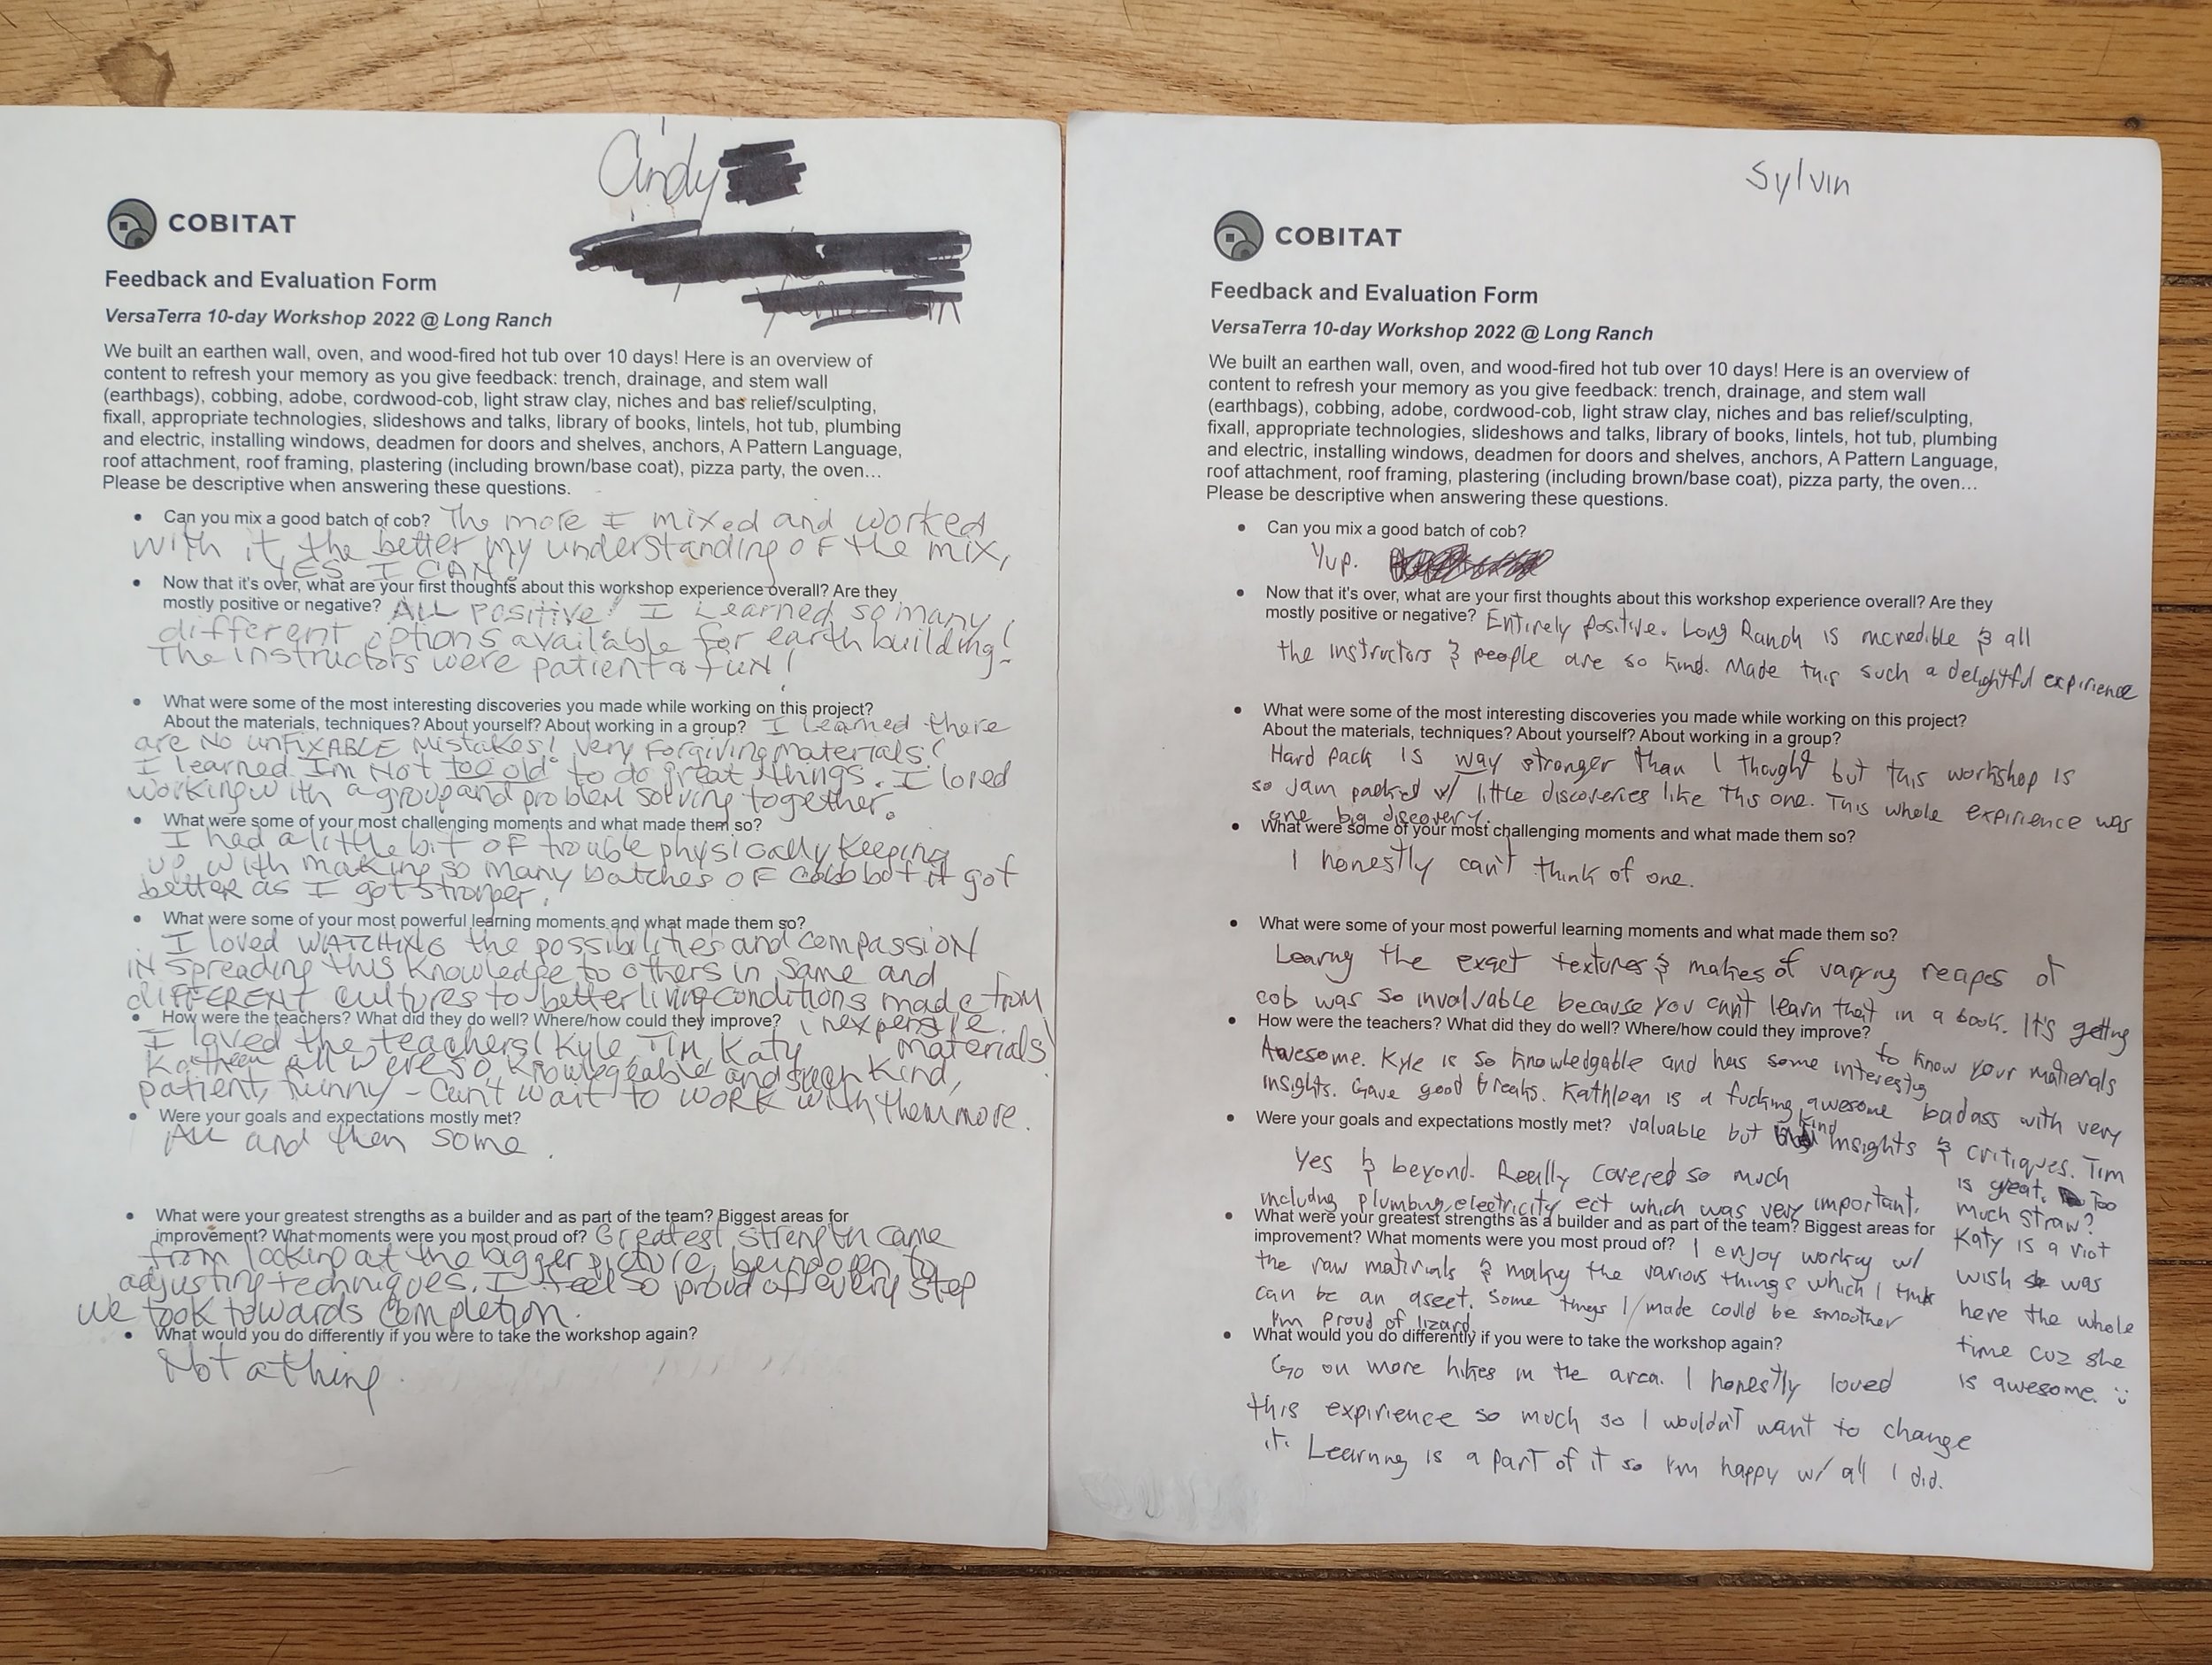 Cindy
COBITAT
Feedback and Evaluation Form
VersaTerra 10-day Workshop 2022 @ Long Ranch
We built an earthen wall, oven, and wood-fired hot tub over 10 days! Here is an overview of
content to refresh your memory as you give feedback: trench, drainage, and stem wall
(earthbags), cobbing, adobe, cordwood-cob, light straw clay, niches and bas relief/sculpting,
fixall, appropriate technologies, slideshows and talks, library of books, lintels, hot tub, plumbing
and electric, installing windows, deadmen for doors and shelves, anchors, A Pattern Language,
roof attachment, roof framing, plastering (including brown/base coat), pizza party, the oven...
Please be descriptive when answering these questions.
• Can you mix a good batch of cob? The more I mixed and worked
with it, the better my understanding of the mix,
YES I CAN.
• Now that it's over, what are your first thoughts about this workshop experience overall? Are they
mostly positive or negative? ALL Positive! I Learned so many
different options available for earth building!
The instructors were patient & fun!
• What were some of the most interesting discoveries you made while working on this project?
About the materials, techniques? About yourself? About working in a group? I learned there
are NO UNFIXABLE Mistakes! Very Forgiving materials!
I learned Im Not too old to do great things. I loved
working with a group and problem solving together.
• What were some of your most challenging moments and what made them so?
I had a little bit of trouble physically keeping
up with making so many batches of cobb but it got
better as I got stronger.
• What were some of your most powerful learning moments and what made them so?
I loved WATCHING the possibilities and compassion
IN spreading this knowledge to others in same and
DIFFERENT cultures to better living conditions made from
inexpensive
materials!
• How were the teachers? What did they do well? Where/how could they improve?
I loved the teachers! Kyle, Tim, Katy
Kathleen all were so knowlegeable and such kind,
patient, funny - Can't wait to work with them more.
• Were your goals and expectations mostly met?
ALL and then some.
• What were your greatest strengths as a builder and as part of the team? Biggest areas for
improvement? What moments were you most proud of? Greatest strength came
from looking at the bigger picture, being open to
adjusting techniques. I feel so proud of every step
we took towards completion.
• What would you do differently if you were to take the workshop again?
Not a thing.
Sylvin
COBITAT
Feedback and Evaluation Form
VersaTerra 10-day Workshop 2022 @ Long Ranch
We built an earthen wall, oven, and wood-fired hot tub over 10 days! Here is an overview of
content to refresh your memory as you give feedback: trench, drainage, and stem wall
(earthbags), cobbing, adobe, cordwood-cob, light straw clay, niches and bas relief/sculpting,
fixall, appropriate technologies, slideshows and talks, library of books, lintels, hot tub, plumbing
and electric, installing windows, deadmen for doors and shelves, anchors, A Pattern Language,
roof attachment, roof framing, plastering (including brown/base coat), pizza party, the oven...
Please be descriptive when answering these questions.
• Can you mix a good batch of cob?
Yup.
• Now that it's over, what are your first thoughts about this workshop experience overall? Are they
mostly positive or negative? Entirely positive. Long Ranch is incredible & all
the instructors & people are so kind. Made this such a delightful expirience
• What were some of the most interesting discoveries you made while working on this project?
About the materials, techniques? About yourself? About working in a group?
Hard pack is way stronger than I thought but this workshop is
so jam packed w/ little discoveries like this one. This whole expirience was
one big discovery.
• What were some of your most challenging moments and what made them so?
I honestly can't think of one.
• What were some of your most powerful learning moments and what made them so?
Learning the exact textures & makes of varying recipes of
cob was so invaluable because you can't learn that in a book. It's getting
to know your materials
• How were the teachers? What did they do well? Where/how could they improve?
Awesome. Kyle is so knowledgable and has some interesting
insights. Gave good breaks. Kathleen is a fucking awesome badass with very
valuable but kind insights & critiques. Tim
is great. Too
much straw?
Katy is a riot
wish she was
here the whole
time cuz she
is awesome. :)
• Were your goals and expectations mostly met?
Yes & beyond. Really covered so much
including plumbing, electricity ect which was very important.
• What were your greatest strengths as a builder and as part of the team? Biggest areas for
improvement? What moments were you most proud of? I enjoy working w/
the raw materials & making the various things which I think
can be an asset. Some things I made could be smoother
I'm proud of lizard
• What would you do differently if you were to take the workshop again?
Go on more hikes in the area. I honestly loved
this expirience so much so I wouldn't want to change
it. Learning is a part of it so I'm happy w/ all I did.